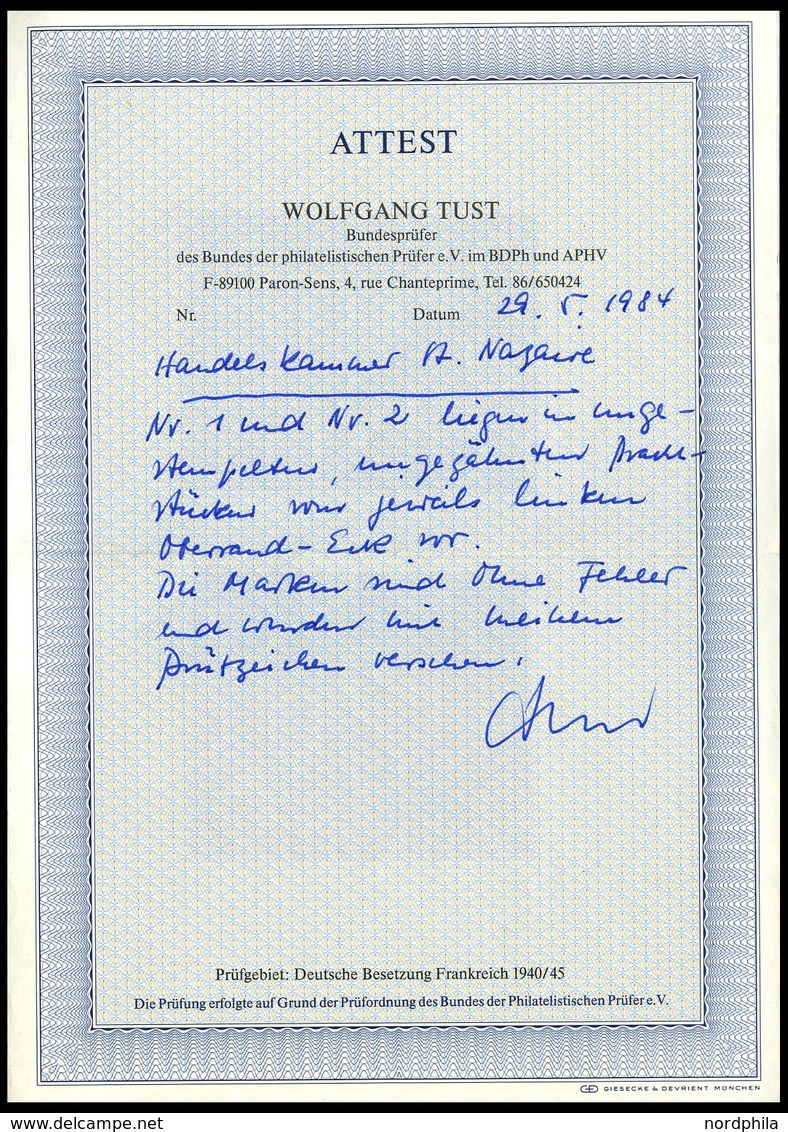 ATTEST
WOLFGANG TUST
Bundesprüfer
des Bundes der philatelistischen Prüfer e.V. im BDPh und APHV
F-89100 Paron-Sens, 4, rue Chanteprime, Tel. 86/650424
Nr. Datum 29. 5. 1984
Handelskammer St. Nazaire
Nr. 1 und Nr. 2 liegen in unge-
stempelten, ungezähnten Pracht-
stücken vom jeweils linken
Oberrand-Eck vor.
Die Marken sind ohne Fehler
und wurden mit meinem
Prüfzeichen versehen.
Prüfgebiet: Deutsche Besetzung Frankreich 1940/45
Die Prüfung erfolgte auf Grund der Prüfordnung des Bundes der Philatelistischen Prüfer e.V.
GIESECKE & DEVRIENT MÜNCHEN
www.delcampe.net nordphila